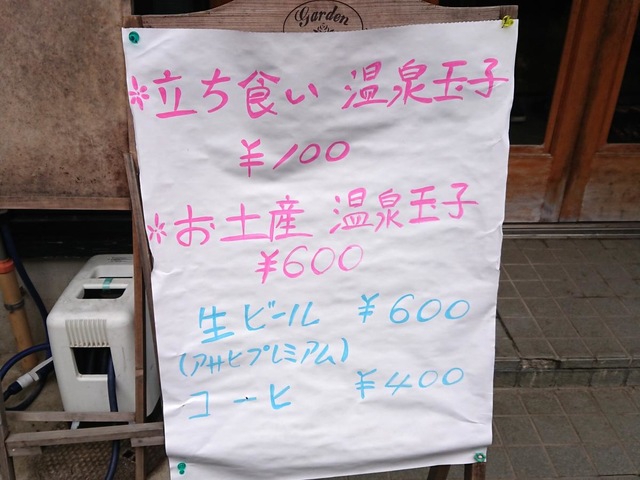 Garden
*立ち食い 温泉玉子
¥100
*お土産 温泉玉子
¥600
生ビール ¥600
(アサヒプレミアム)
コーヒ ¥400